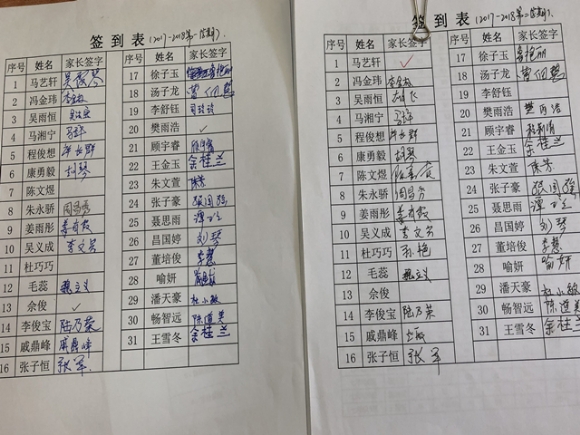 签到表(2017-2018第一学期)
序号 姓名 家长签字
1 马艺轩
2 冯金玮 李金枝
3 吴雨恒
4 马湘宁
5 程俊想
6 康勇毅 胡琴
7 陈文煜
8 朱永骄 周昌芳
9 姜雨彤 姜有霞
10 吴义成 李文芳
11 杜巧巧
12 毛蕊 魏立义
13 余俊 ✓
14 李俊宝 陆乃荣
15 戚鼎峰 戚鼎峰
16 张子恒 张军
序号 姓名 家长签字
17 徐子玉
18 汤子龙
19 李舒钰
20 樊雨浩 ✓
21 顾宇睿
22 王金玉 余桂兰
23 朱文萱 陈芳
24 张子豪 张国强
25 聂思雨 谭立兰
26 昌国婷 刘琴
27 董培俊 李慧
28 喻妍
29 潘天豪 杜小敏
30 杨智远 陈道美
31 王雪冬 余桂兰
签到表(2017-2018第二学期)
序号 姓名 家长签字
1 马艺轩 ✓
2 冯金玮 李金枝
3 吴雨恒
4 马湘宁
5 程俊想
6 康勇毅 胡琴
7 陈文煜
8 朱永骄 周昌芳
9 姜雨彤 姜有霞
10 吴义成 李文芳
11 杜巧巧 孙艳
12 毛蕊 魏立义
13 余俊
14 李俊宝 陆乃荣
15 戚鼎峰
16 张子恒 张军
序号 姓名 家长签字
17 徐子玉
18 汤子龙
19 李舒钰
20 樊雨浩
21 顾宇睿
22 王金玉 余桂兰
23 朱文萱 陈芳
24 张子豪 张国强
25 聂思雨 谭立兰
26 昌国婷 刘琴
27 董培俊 李慧
28 喻妍 喻妍
29 潘天豪 杜小敏
30 杨智远 陈道美
31 王雪冬 余桂兰